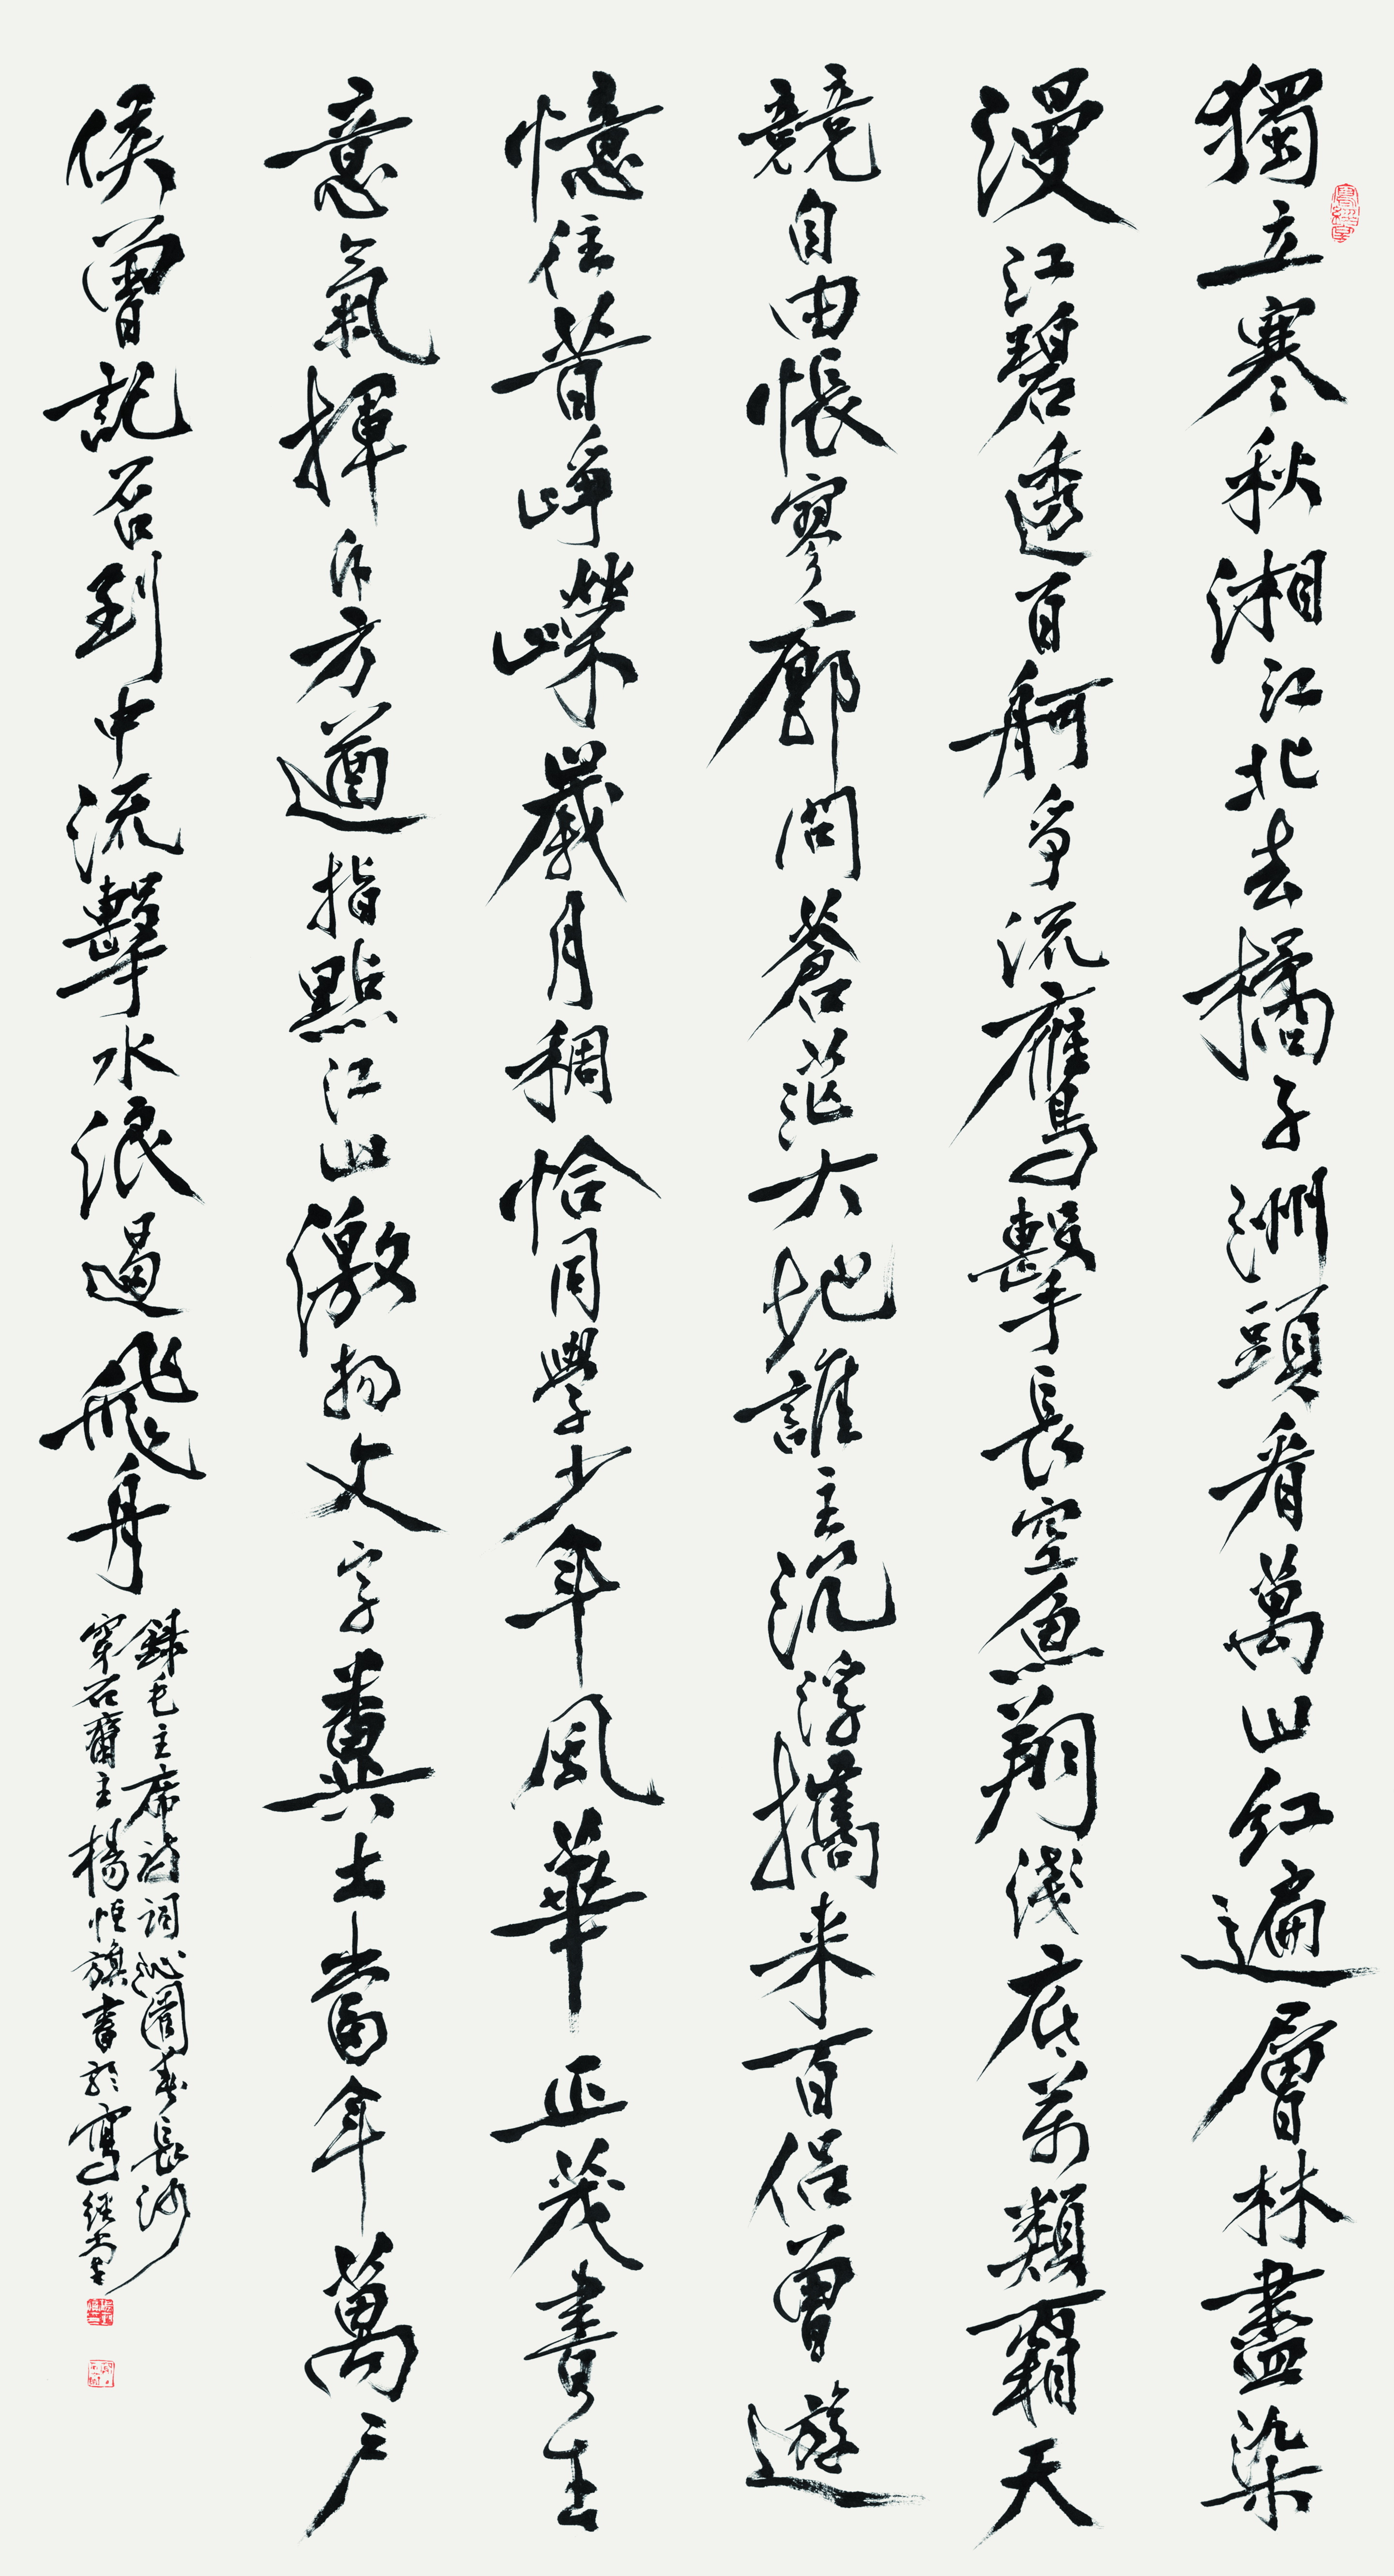 獨立寒秋湘江北去橘子洲頭看萬山紅遍層林盡染
漫江碧透百舸爭流鷹擊長空魚翔淺底萬類霜天
競自由悵寥廓問蒼茫大地誰主沉浮攜来百侶曾遊
憶往昔崢嶸歲月稠恰同學少年風華正茂書生
意氣揮斥方遒指點江山激揚文字糞土當年萬戶
侯曾記否到中流擊水浪遏飛舟
錄毛主席詩詞沁園春長沙
穿石齋主楊恒旗書於寫經堂